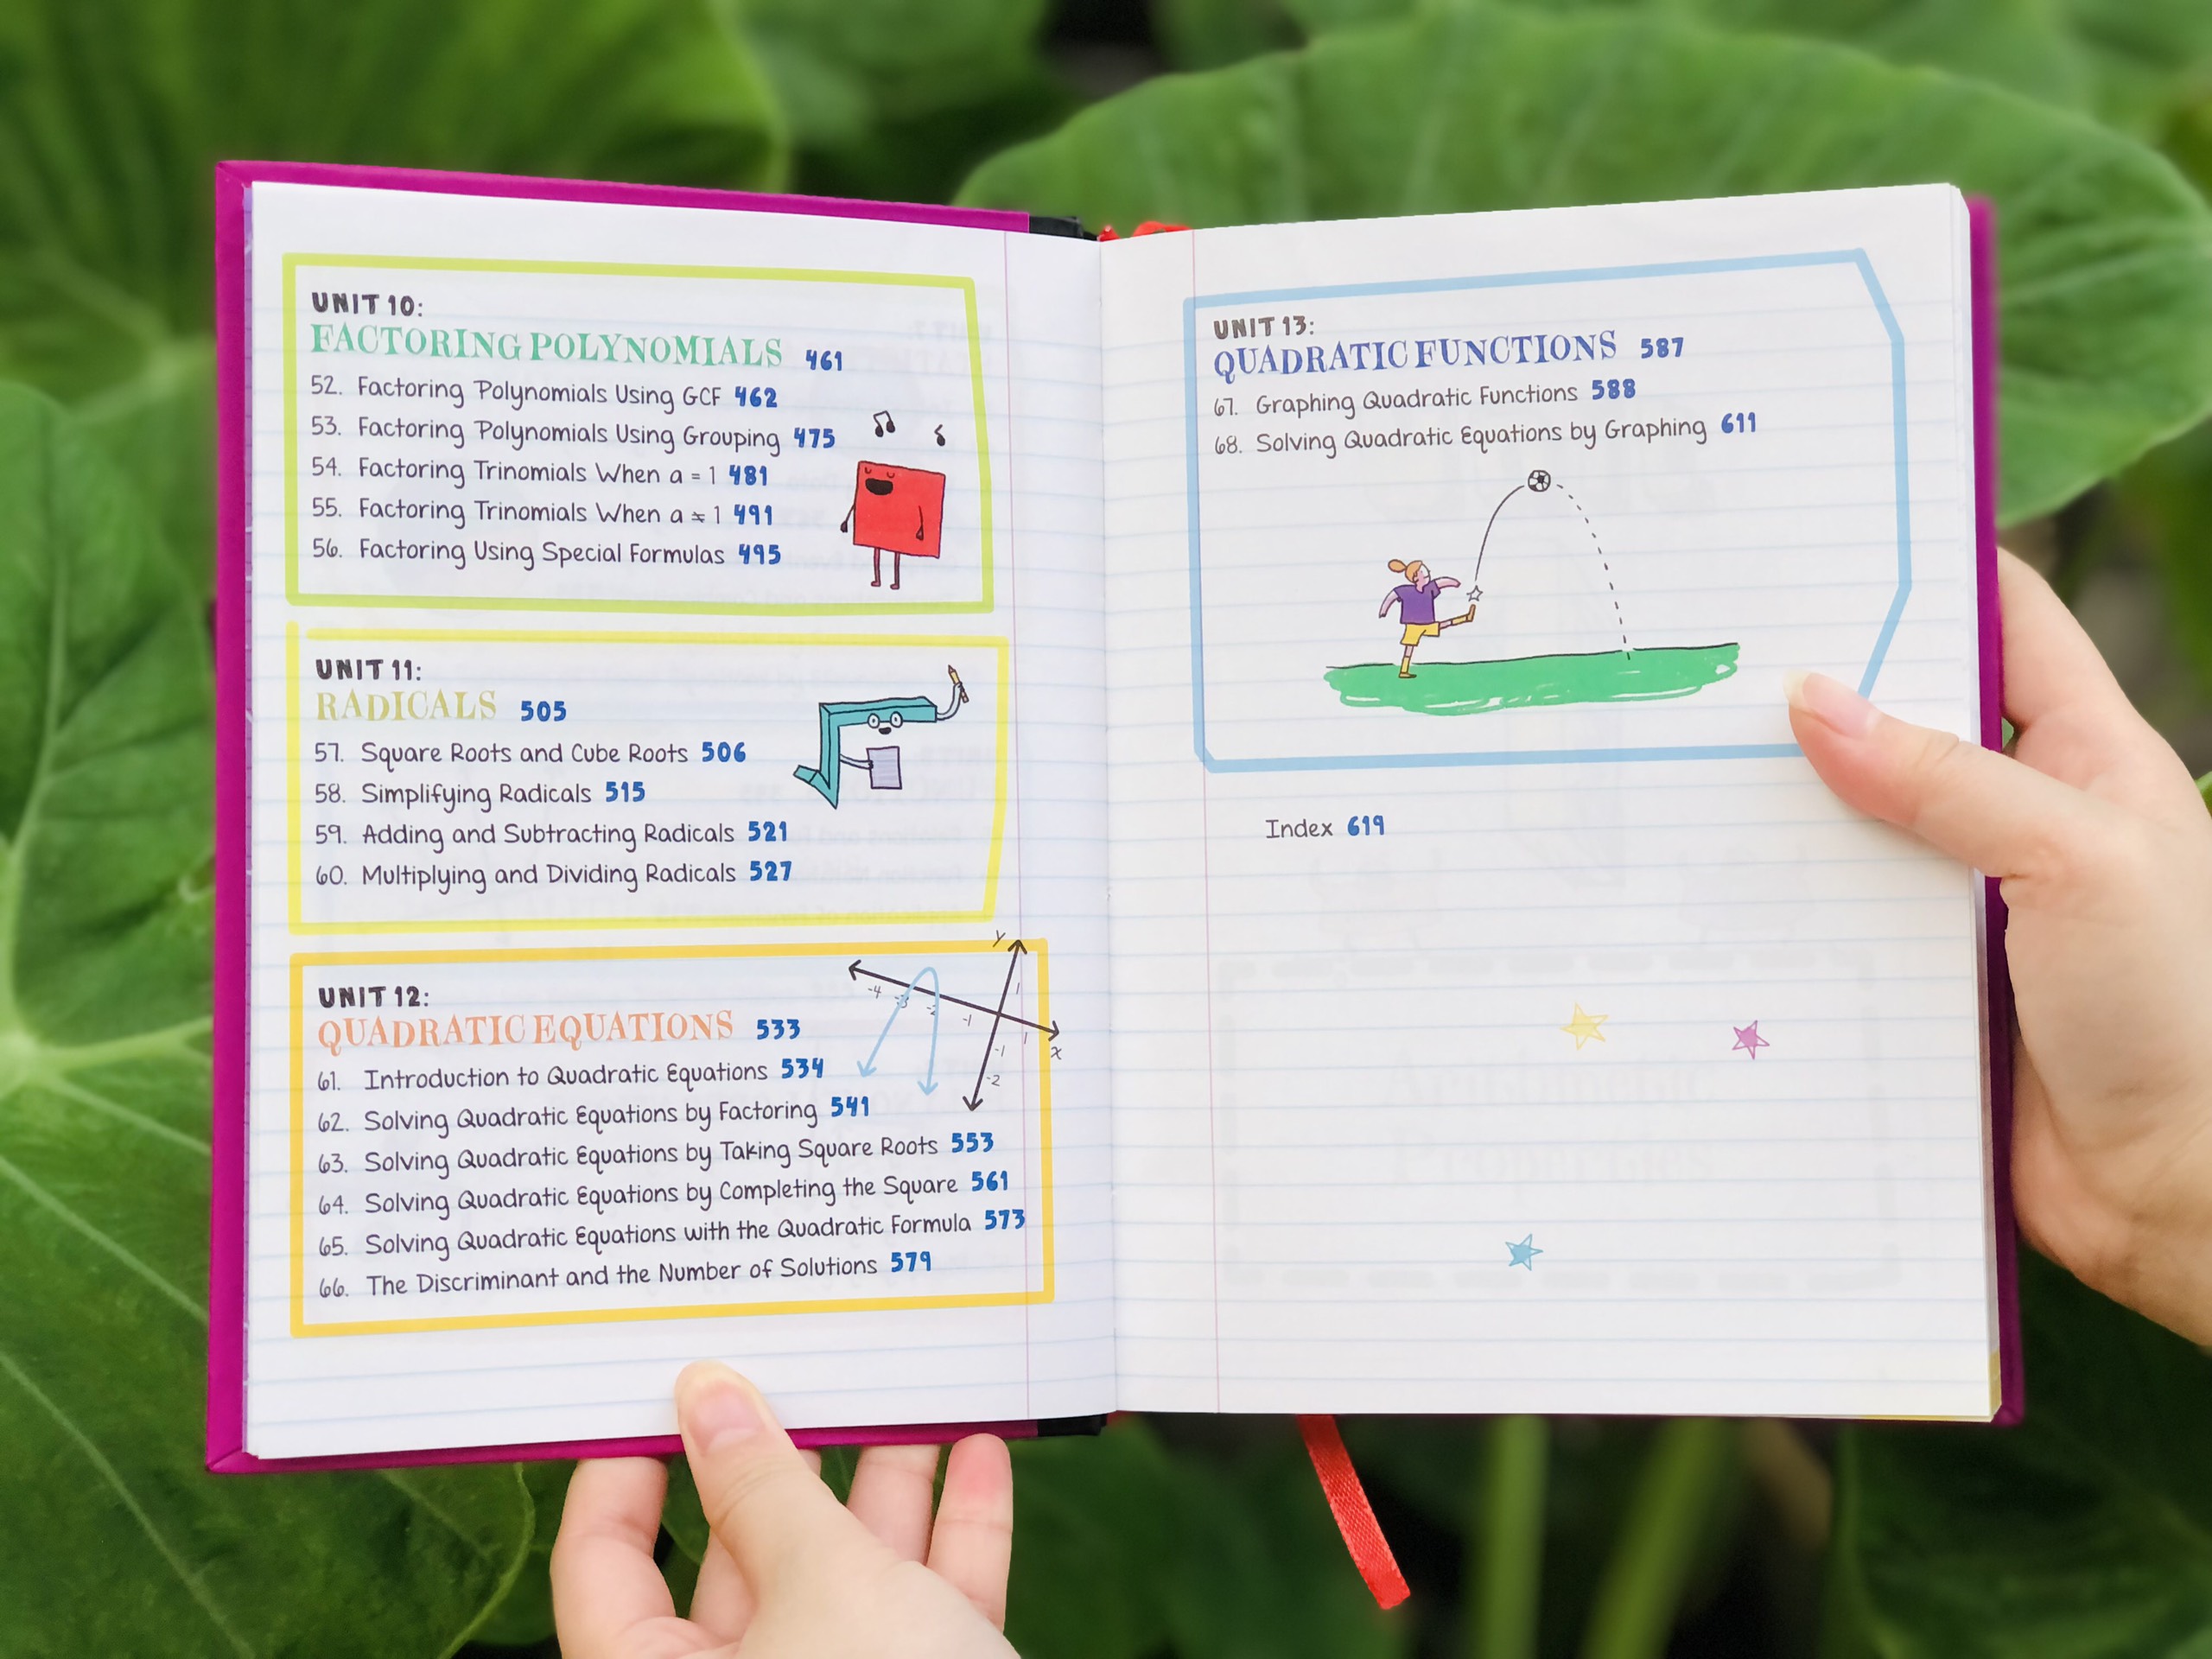 UNIT 10:
FACTORING POLYNOMIALS 461
52. Factoring Polynomials Using GCF 462
53. Factoring Polynomials Using Grouping 475
54. Factoring Trinomials When a = 1 481
55. Factoring Trinomials When a ≠ 1 491
56. Factoring Using Special Formulas 495
UNIT 11:
RADICALS 505
57. Square Roots and Cube Roots 506
58. Simplifying Radicals 515
59. Adding and Subtracting Radicals 521
60. Multiplying and Dividing Radicals 527
UNIT 12:
QUADRATIC EQUATIONS 533
61. Introduction to Quadratic Equations 534
62. Solving Quadratic Equations by Factoring 541
63. Solving Quadratic Equations by Taking Square Roots 553
64. Solving Quadratic Equations by Completing the Square 561
65. Solving Quadratic Equations with the Quadratic Formula 573
66. The Discriminant and the Number of Solutions 579
y
1
-4 -3 -2 -1 1
x
-1
-2
UNIT 13:
QUADRATIC FUNCTIONS 587
67. Graphing Quadratic Functions 588
68. Solving Quadratic Equations by Graphing 611
Index 619